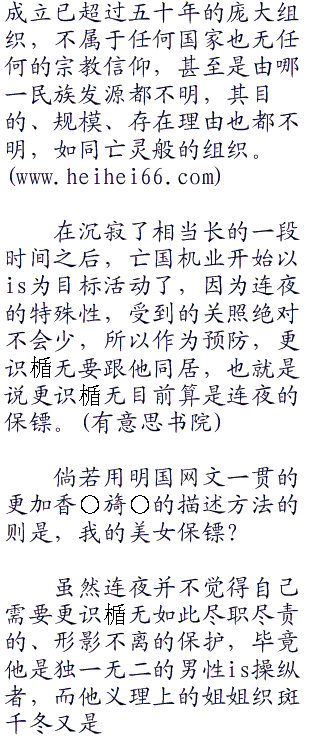 成立已超过五十年的庞大组
织，不属于任何国家也无任
何的宗教信仰，甚至是由哪
一民族发源都不明，其目
的、规模、存在理由也都不
明，如同亡灵般的组织。
(www.heihei66.com)
　　在沉寂了相当长的一段
时间之后，亡国机业开始以
is为目标活动了，因为连夜
的特殊性，受到的关照绝对
不会少，所以作为预防，更
识楯无要跟他同居，也就是
说更识楯无目前算是连夜的
保镖。(有意思书院)
　　倘若用明国网文一贯的
更加香○旖○的描述方法的
则是，我的美女保镖？
　　虽然连夜并不觉得自己
需要更识楯无如此尽职尽责
的、形影不离的保护，毕竟
他是独一无二的男性is操纵
者，而他义理上的姐姐织斑
千冬又是